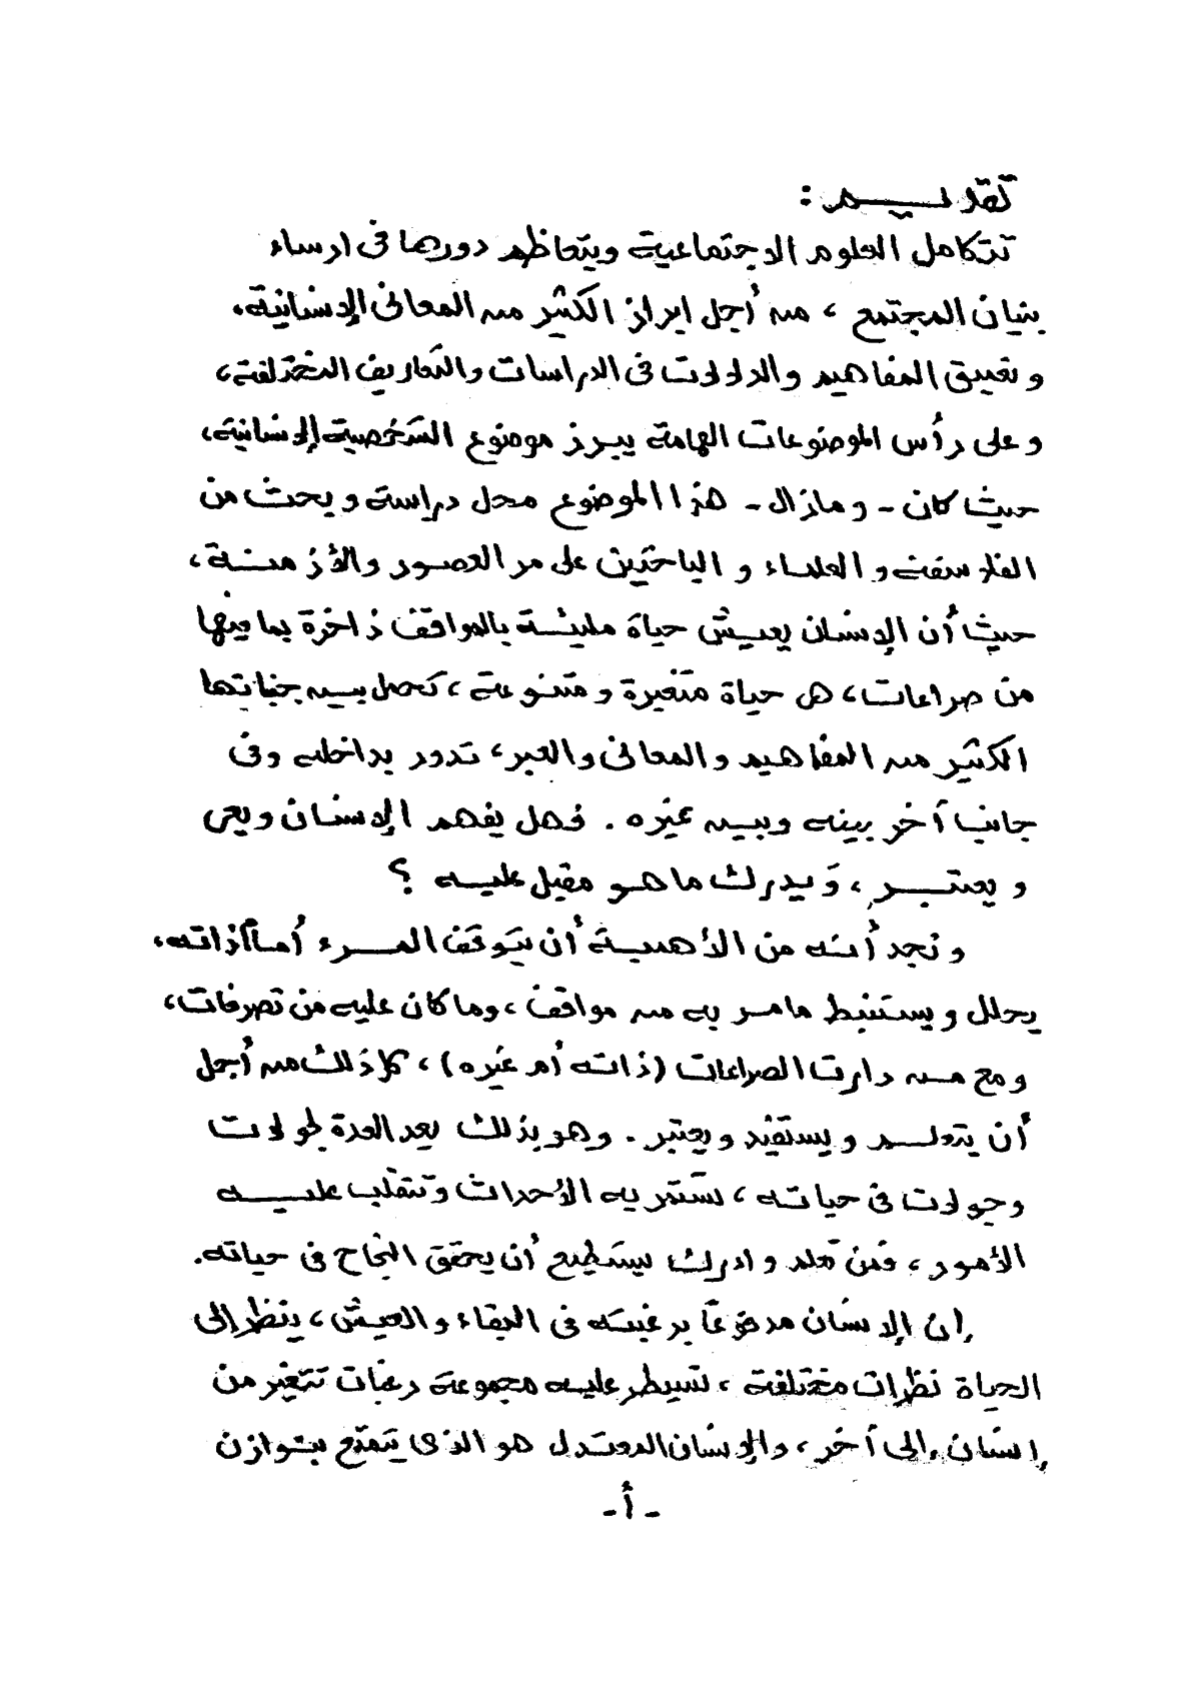 تقديــم :
تتكامل العلوم الاجتماعية ويتعاظم دورها فى ارساء
بنيان المجتمع ، من أجل ابراز الكثير من المعانى الإنسانية،
وتعميق المفاهيم والدلالات فى الدراسات والتعاريف المختلفة،
وعلى رأس الموضوعات الهامة يبرز موضوع الشخصية الإنسانية،
حيث كان - ومازال - هذا الموضوع محل دراسة وبحث من
الفلاسفة والعلماء والباحثين على مر العصور والأزمنــة،
حيث أن الإنسان يعيش حياة مليئــة بالمواقف ذاخرة بما فيها
من صراعات، هى حياة متغيرة ومتنوعة ، تحمل بيـن جنباتها
الكثير من المفاهيم والمعانى والعبر، تدور بداخله وفى
جانب آخر بينه وبيـن غيره . فهل يفهم الإنسان ويعى
ويعتبــر ، ويدرك ما هو مقبل عليــه ؟
ونجد أنـه من الأهميــة أن يتوقف المــرء أمام ذاته،
يحلل ويستنبط ما مــر به من مواقف ، وما كان عليه من تصرفات،
ومع مــن دارت الصراعات (ذاته أم غيره) ، كل ذلك من أجل
أن يتعلــم ويستفيد ويعتبر . وهو بذلك يعد العدة لجولات
وجولات فى حياته ، تستمر به الأحداث وتتقلب عليــه
الأمور ، فمن تعلم وادرك يستطيع أن يحقق النجاح فى حياته.
إن الإنسان مدفوعاً برغبته فى البقاء والعيش ، ينظر إلى
الحياة نظرات مختلفة ، تسيطر عليــه مجموعة رغبات تتغير من
إنسان إلى آخر ، والإنسان المعتدل هو الذى يتمتع بتوازن
-أ-